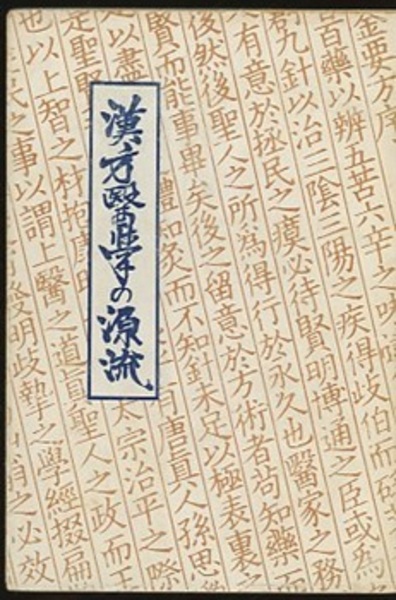 漢方醫學の源流
金要方序
百藥以辨五苦六辛之味
創九針以治三陰三陽之疾得歧伯而砭
有意於拯民之瘼必待賢明博通之臣或爲
後然後聖人之所爲得行於永久也醫家之務
賢而能事畢矣後之留意於方術者苟知藥而
以盡 體知灸而不知針未足以極表裏之
是聖賢 有唐眞人孫思
也以上智之材抱康時 太宗治平之際
民之事以謂上醫之道眞聖人之政而王
發明歧摯之學經掇扁
之必效